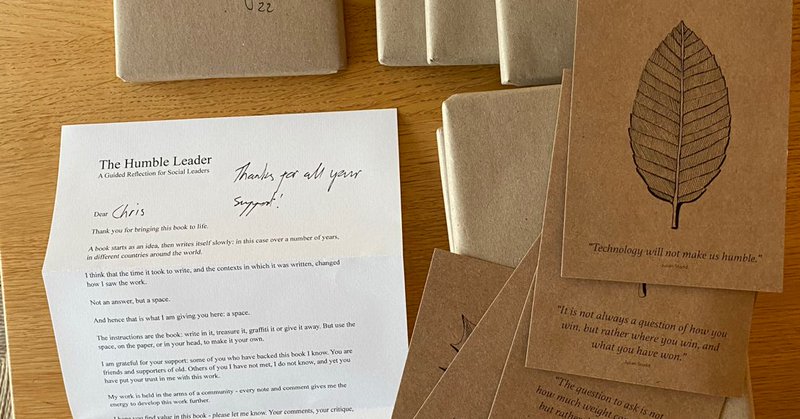 22
The Humble Leader
A Guided Reflection for Social Leaders
Thanks for all your
support!
Dear Chris
Thank you for bringing this book to life.
A book starts as an idea, then writes itself slowly: in this case over a number of years,
in different countries around the world.
I think that the time it took to write, and the contexts in which it was written, changed
how I saw the work.
Not an answer, but a space.
And hence that is what I am giving you here: a space.
The instructions are the book: write in it, treasure it, graffiti it or give it away. But use the
space, on the paper, or in your head, to make it your own.
I am grateful for your support: some of you who have backed this book I know. You are
friends and supporters of old. Others of you I have not met, I do not know, and yet you
have put your trust in me with this work.
My work is held in the arms of a community - every note and comment gives me the
energy to develop this work further.
I hope you find value in this book - please let me know. Your comments, your critique,
"Technology will not make us humble."
Julian Stodd
"It is not always a question of how you
win, but rather where you win, and
what you have won."
Julian Stodd
"The question to ask is not
how much weight
but rather